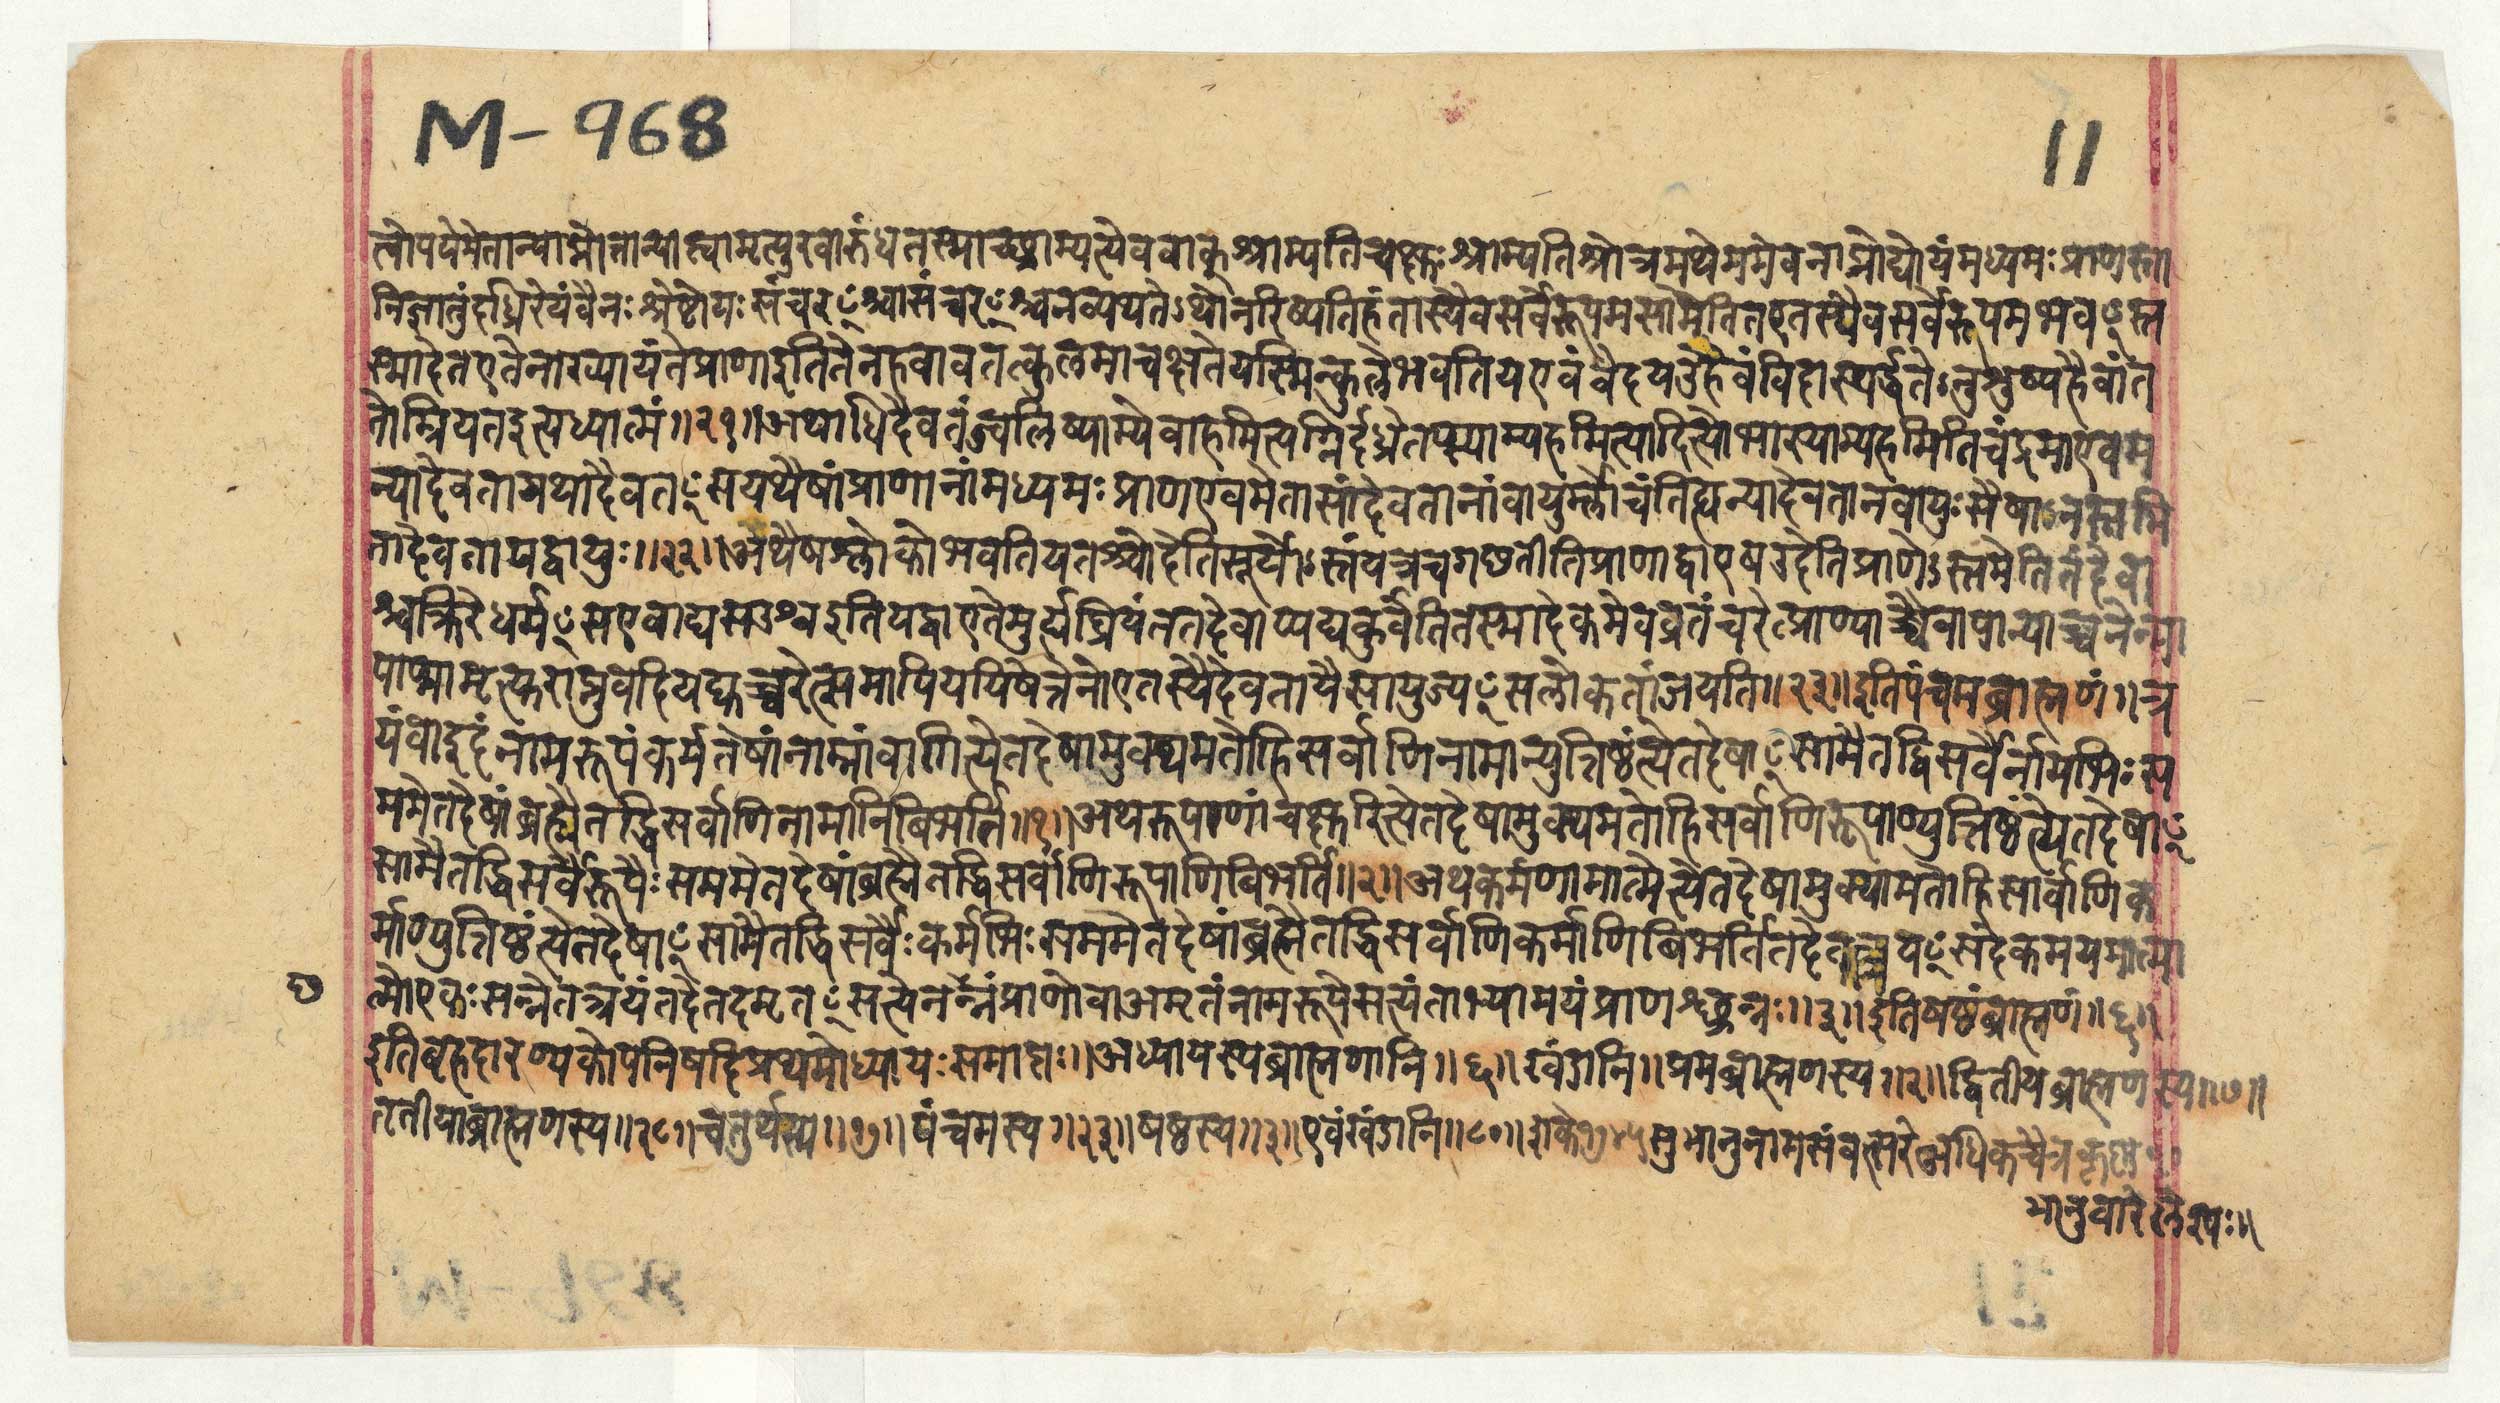 M-968
11
त्वोपयेमेतान्याप्नोत्तान्याप्त्वामृत्युरवारुंधतस्माच्छ्राम्यत्येववाक्श्राम्यतिचक्षुःश्राम्यतिश्रोत्रमथेममेवनाप्नोद्योयंमध्यमःप्राणस्ता
निज्ञातुंदध्रिरेयंवैनःश्रेष्ठोयःसंचरꣳश्चासंचरꣳश्चनव्यथतेऽथोनरिष्यतिहंतास्यैवसर्वेरूपमसामेतितएतस्यैवसर्वेरूपमभवꣳस्त
स्मादेतएतेनाख्यायंतेप्राणाइतितेनहवावतत्कुलमाचक्षतेयस्मिन्कुलेभवतियएवंवेदयउहैवंविदास्पर्द्धतेऽनुशुष्यहैवांत
तोम्रियतइत्यध्यात्मं॥२१॥अथाधिदैवतंज्वलिष्याम्येवाहमित्यग्निर्दध्रेतप्स्याम्यहमित्यादित्योभास्याम्यहमितिचंद्रमाएवम
न्यादेवतायथादैवतꣳसयथैषांप्राणानांमध्यमःप्राणएवमेतासांदेवतानांवायुर्म्लोचंतिह्यन्यादेवतानवायुःसैषाऽनस्तमि
तादेवतायद्वायुः॥२२॥अथैषश्लोकोभवतियतश्चोदेतिसूर्योऽस्तंयत्रचगछतीतिप्राणाद्वाएषउदेतिप्राणेऽस्तमेतितंदेवा
श्चक्रिरेधर्मꣳसएवाद्यसउश्वइतियद्वाएतेमुर्ह्यध्रियंततदेवाप्यद्यकुर्वंतितस्मादेकमेवव्रतंचरेत्प्राण्याच्चैवापान्याच्चनेन्मा
पाप्मामृत्युराप्नुवदितियद्युचरेत्समापिपयिषेत्तेनोएतस्यैदेवतायैसायुज्यꣳसलोकतांजयति॥२३॥इतिपंचमब्राह्मणं॥त्र
यंवाइदंनामरूपंकर्मतेषांनाम्नांवागित्येतदेषामुक्थमतोहिसर्वाणिनामान्युत्तिष्ठंत्येतदेषाꣳसामैतद्धिसर्वैर्नामभिःस
ममेतदेषांब्रह्मैतद्धिसर्वाणिनामानिबिभर्ति॥१॥अथरूपाणांचक्षुरित्येतदेषामुक्थमतोहिसर्वाणिरूपाण्युत्तिष्ठंत्येतदेषाꣳ
सामैतद्धिसर्वैरूपैःसममेतदेषांब्रह्मैतद्धिसर्वाणिरूपाणिबिभर्ति॥२॥अथकर्मणामात्मेत्येतदेषामुक्थामतोहिसार्वाणिक
र्माण्युत्तिष्ठंत्येतदेषाꣳसामैतद्धिसर्वैःकर्मभिःसममेतदेषांब्रह्मैतद्धिसर्वाणिकर्माणिबिभर्तितदेतत्त्रयꣳसदेकमयमात्मा
त्मोएकःसन्नेतत्त्रयंतदेतदमृतꣳसत्येनछन्नंप्राणोवाअमृतंनामरूपेसत्यंताभ्यामयंप्राणश्छन्नः॥३॥इतिषष्ठंब्राह्मणं॥६॥
इतिबृहदारण्यकोपनिषदिप्रथमोध्यायःसमाप्तः॥अध्यायस्यब्राह्मणानि॥६॥खंडानि॥प्रमब्राह्मणस्य॥२॥द्वितीयब्राह्मणस्य॥७॥
तृतीयाब्राह्मणस्य॥२८॥चतुर्थस्य॥१७॥पंचमस्य॥२३॥षष्ठस्य॥३॥एवंखंडानि॥८०॥शकेसुभानुनामसंवत्सरेअधिकचैत्रकृष्ण
भानुवारे